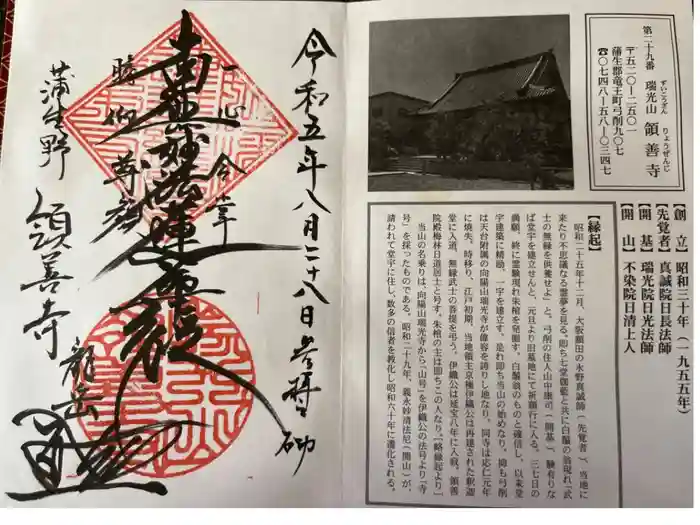 第二十九番
瑞光山 領善寺
ずいこうざん りょうぜんじ
〒五二〇-二五〇一
蒲生郡竜王町弓削九〇七
☎〇七四八-五八-〇三四七
【創 立】昭和三十年(一九五五年)
【先覚者】真誠院日長法師
【開 基】瑞光院日光法師
【開 山】不染院日清上人
【縁起】
昭和二十五年十二月、大阪額田の水野真誠師(先覚者)、当地に
来たり不思議なる霊夢を見る。即ち七堂伽藍と共に白髯の翁現れ「武
士の無縁を供養せよ」と。弓削の住人山中康司(開基)、験有りな
ば堂宇を建立せんと、元旦より旧墓地にて祈願行に入る。三七日の
満願、終に霊験現れ朱棺を発掘す。白髯翁のものと確信し、以来堂
宇建築に精励、一宇を建立す。是れ即ち当山の始めなり。抑も弓削
は天台附属の向陽山瑞光寺が偉容を誇りし地なり。同寺は応仁元年
に焼失。時移り、江戸初期、当地領主京極伊織公は再建された釈迦
堂に入道、無縁武士の菩提を弔う。伊織公は延宝八年に入寂。領善
院殿梅林日道居士と号す。朱棺の主は即ちこの人なり。(略縁起より)
当山の名乗りは、向陽山瑞光寺から「山号」を伊織公の法号より「寺
号」を採ったものである。昭和二十九年、義永妙清法尼(開山)が、
請われて堂宇に住し、数多の信者を教化し昭和六十年に遷化される。
令和五年八月二十八日
一心合掌
南無妙法蓮華経
蒲生野 領善寺